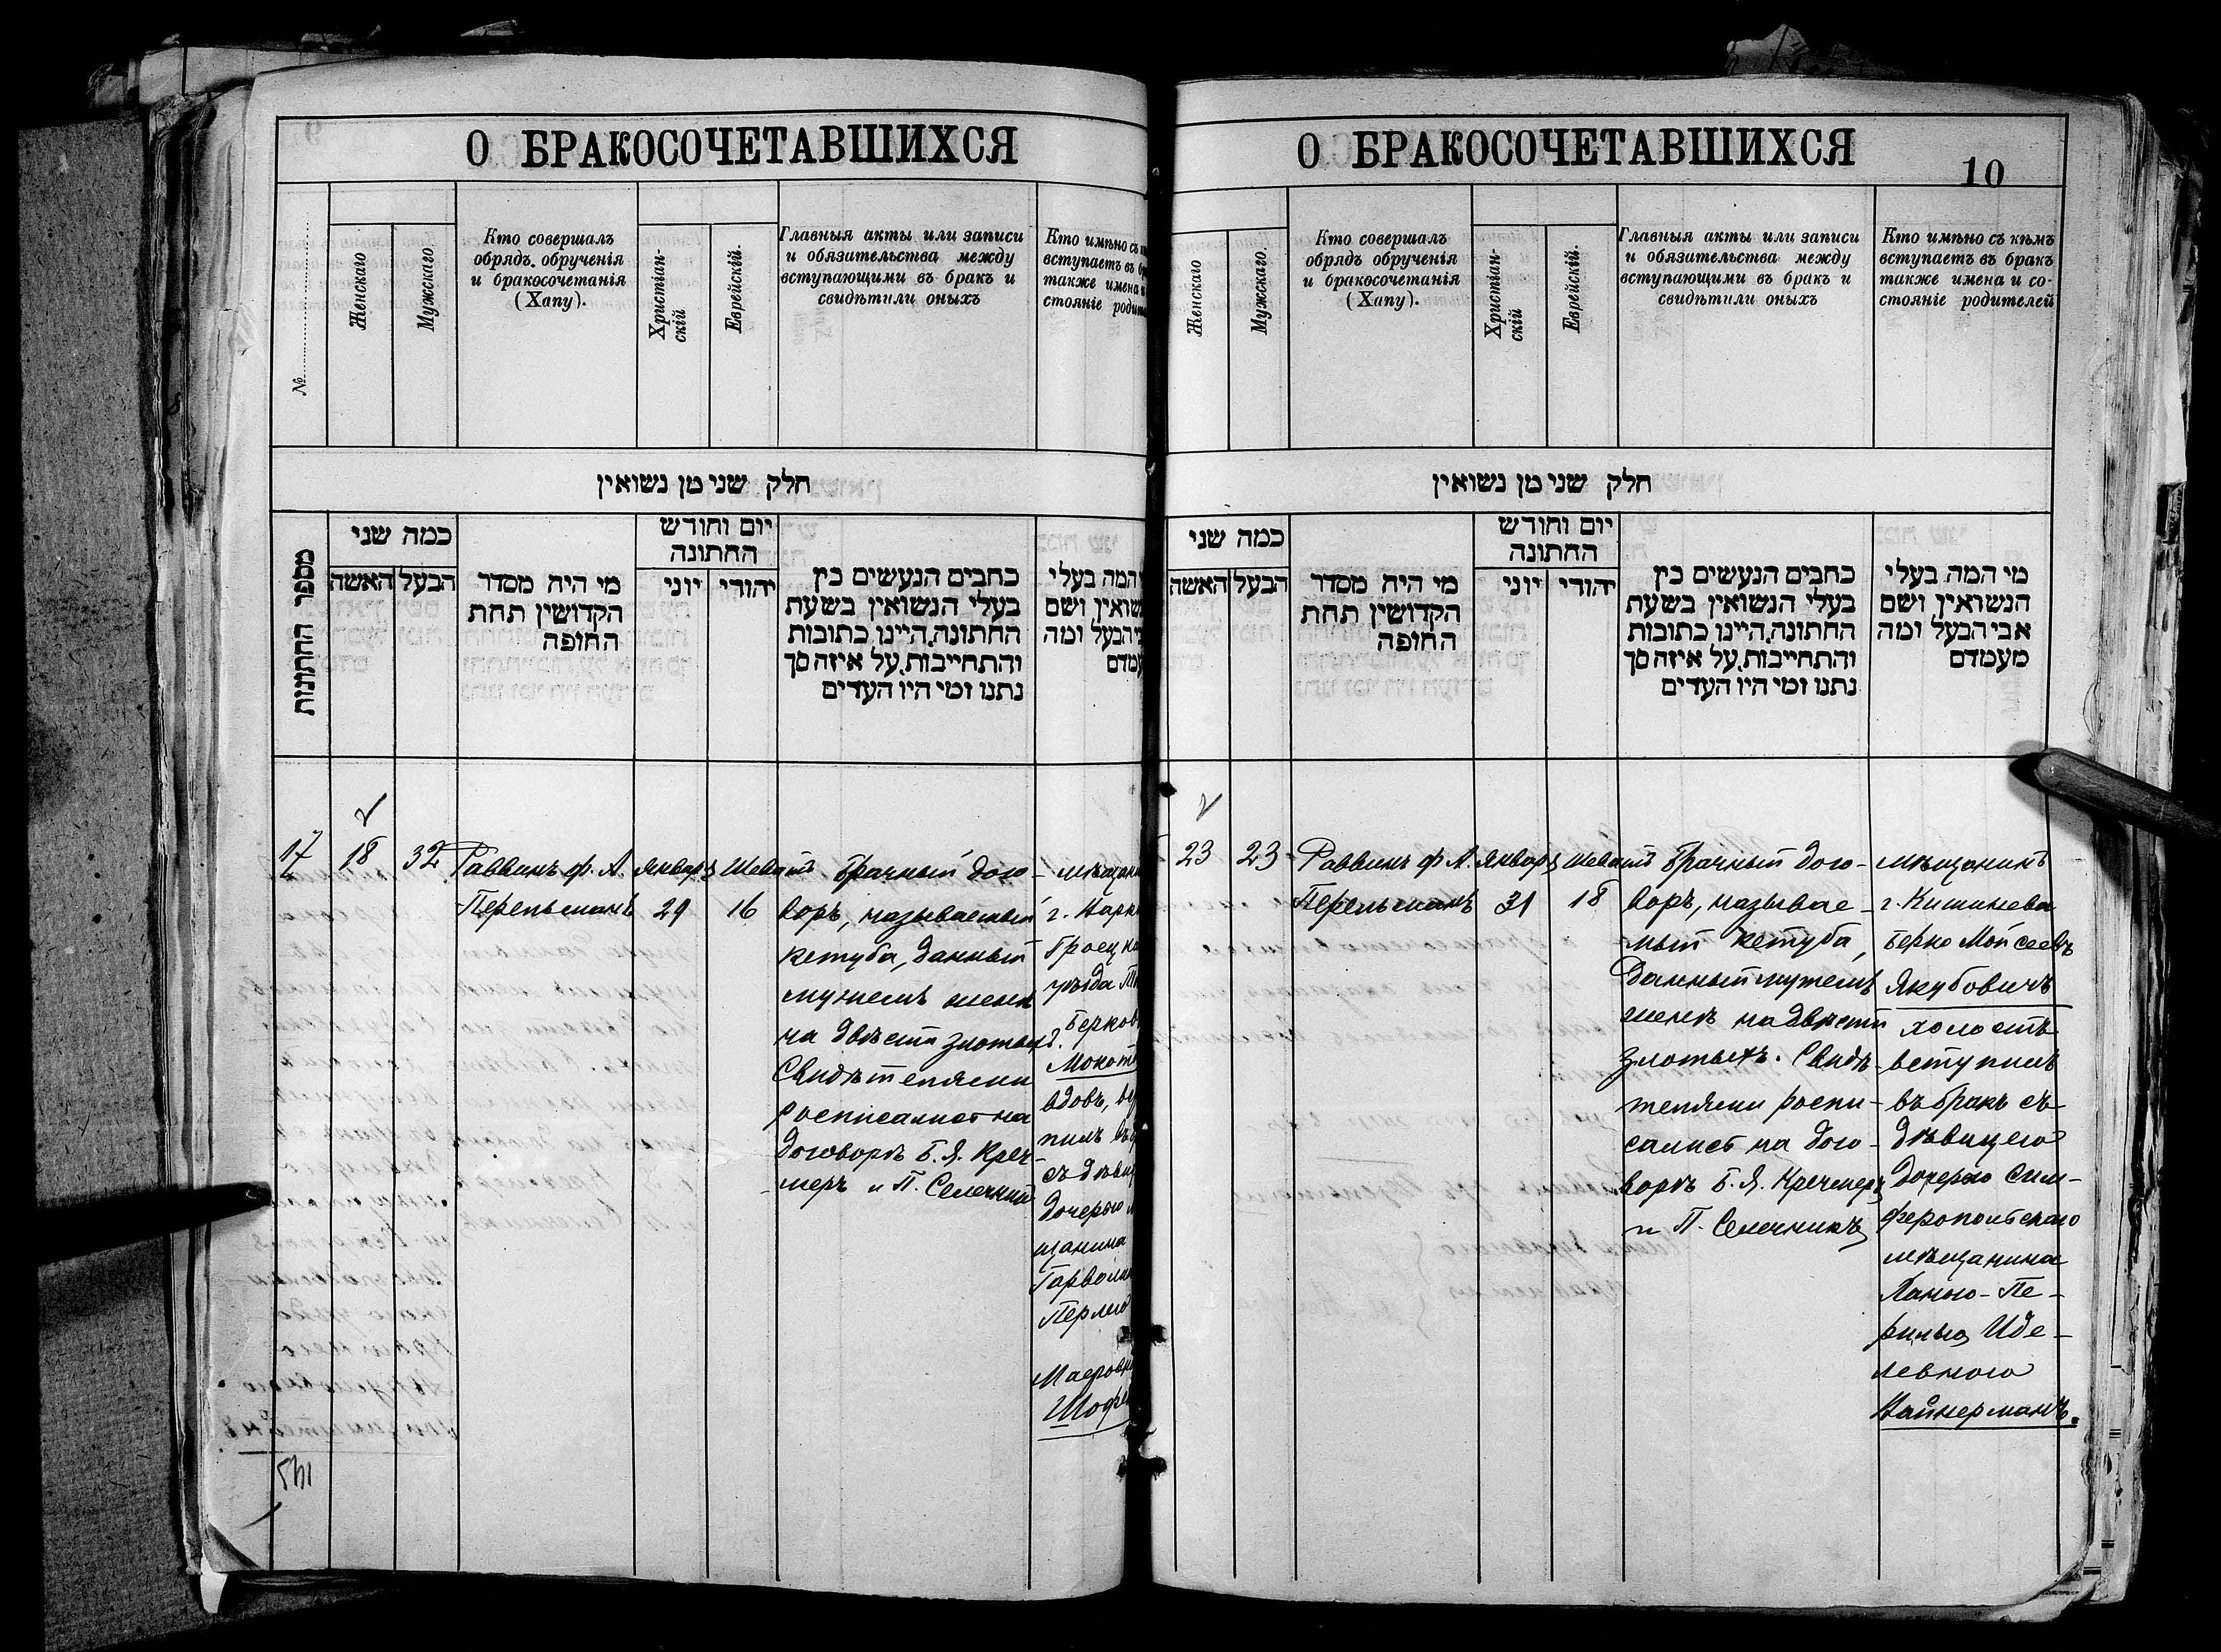 О БРАКОСОЧЕТАВШИХСЯ
№
Женскаго
Мужскаго
Кто совершалъ
обрядъ обрученія
и бракосочетанія
(Хапу).
Христіан-
скій
Еврейскій.
Главныя акты или записи
и обязательства между
вступающими въ бракъ и
свидѣтили оныхъ
Кто имѣно съ
вступаетъ въ
также имена
стояніе
חלק שני מן נשואין
מספר החתונות
כמה שני
האשה
הבעל
מי היה מסדר
הקדושין תחת
החופה
יום וחודש
החתונה
יוני
יהודי
כתבים הנעשים בין
בעלי הנשואין בשעת
החתונה, היינו כתובות
והתחייבות, על איזה סך
נתנו ומי היו העדים
המה בעלי
ושם
הבעל ומה
17
18
32
Раввинъ ф. А.
Перельманъ
Январ
29
Шеватъ
16
Брачный дого-
воръ, называемый
кетуба, данный
мужемъ женѣ
на двѣсти злотых.
Свидѣтелями
росписались на
договорѣ Б. Я. Креч-
меръ и П. Селечникъ
г.
уѣзда
вдовъ,
пилъ
съ
дочерью
щанина
145
О БРАКОСОЧЕТАВШИХСЯ
10
Женскаго
Мужскаго.
Кто совершалъ
обрядъ обрученія
и бракосочетанія
(Хапу).
Христіан-
скій
Еврейскій.
Главныя акты или записи
и обязательства между
вступающими въ бракъ и
свидѣтили оныхъ
Кто имѣно съ кѣмъ
вступаетъ въ бракъ
также имена и со-
стояніе родителей
חלק שני מן נשואין
כמה שני
האשה
הבעל
מי היה מסדר
הקדושין תחת
החופה
יום וחודש
החתונה
יוני
יהודי
כתבים הנעשים בין
בעלי הנשואין בשעת
החתונה, היינו כתובות
והתחייבות, על איזה סך
נתנו ומי היו העדים
מי המה בעלי
הנשואין ושם
אבי הבעל ומה
מעמדם
23
23
Раввинъ ф А.
Перельманъ
Январ
31
Шеватъ
18
Брачный дого-
воръ, называе-
мый кетуба,
данный мужемъ
женѣ на двѣсти
злотыхъ. Свидѣ-
телями роспи-
сались на дого-
ворѣ Б. Я. Кречмеръ
и П. Селечникъ
мѣщанинъ
г. Кишинева
Берко Мойсеевъ
Якубовичъ
холостъ
вступилъ
въ бракъ съ
дѣвицею
дочерью сим-
феропольскаго
мѣщанина
Ханою-Пе-
рилью Иде-
левною
Вайнерманъ.